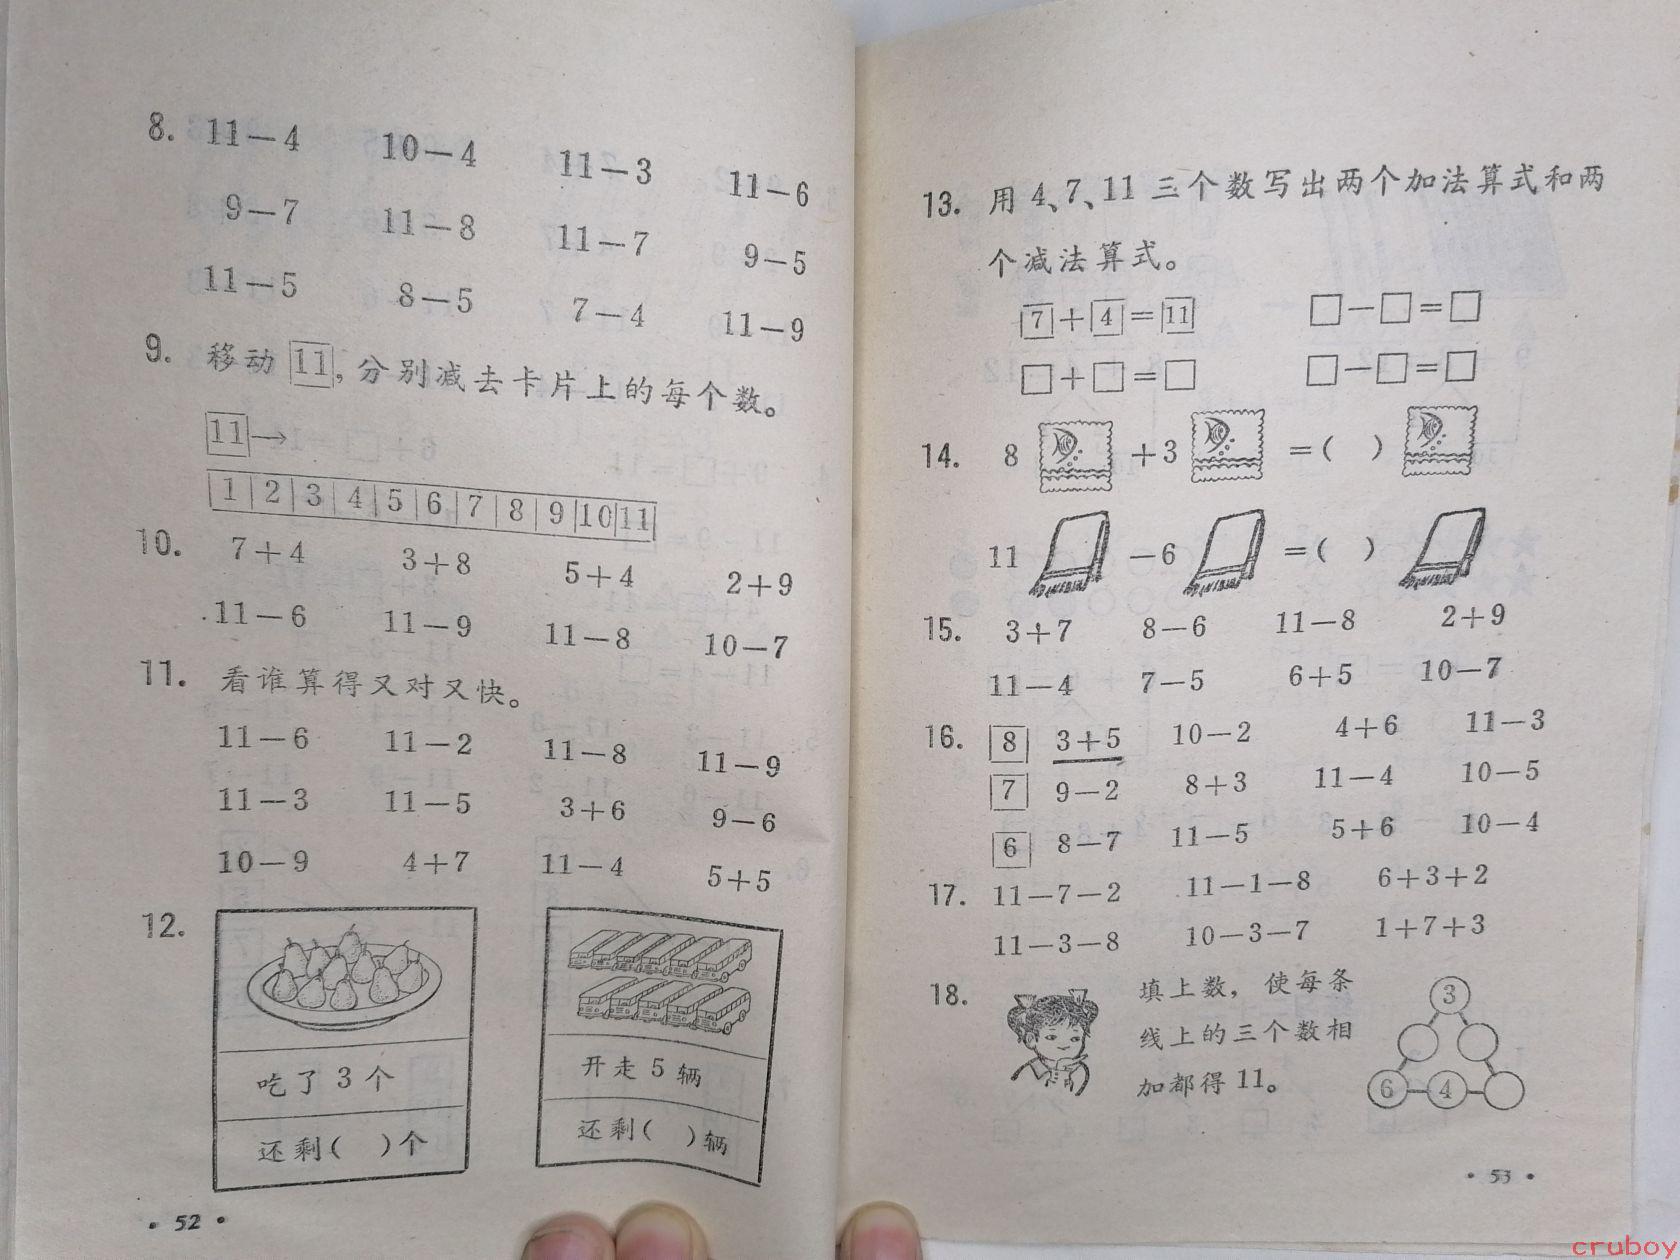 8. 11－4 10－4 11－3 11－6
9－7 11－8 11－7 9－5
11－5 8－5 7－4 11－9
9. 移动 11，分别减去卡片上的每个数。
11→
1 2 3 4 5 6 7 8 9 10 11
10. 7＋4 3＋8 5＋4 2＋9
11－6 11－9 11－8 10－7
11. 看谁算得又对又快。
11－6 11－2 11－8 11－9
11－3 11－5 3＋6 9－6
10－9 4＋7 11－4 5＋5
12.
吃了 3 个
还剩( )个
开走 5 辆
还剩( )辆
• 52 •
13. 用 4、7、11 三个数写出两个加法算式和两
个减法算式。
7＋4＝11 □－□＝□
□＋□＝□ □－□＝□
14. 8 ＋3 ＝( )
11 －6 ＝( )
15. 3＋7 8－6 11－8 2＋9
11－4 7－5 6＋5 10－7
16. 8 3＋5 10－2 4＋6 11－3
7 9－2 8＋3 11－4 10－5
6 8－7 11－5 5＋6 10－4
17. 11－7－2 11－1－8 6＋3＋2
11－3－8 10－3－7 1＋7＋3
18. 填上数，使每条
线上的三个数相
加都得 11。
3
6 4
• 53 •
cruboy